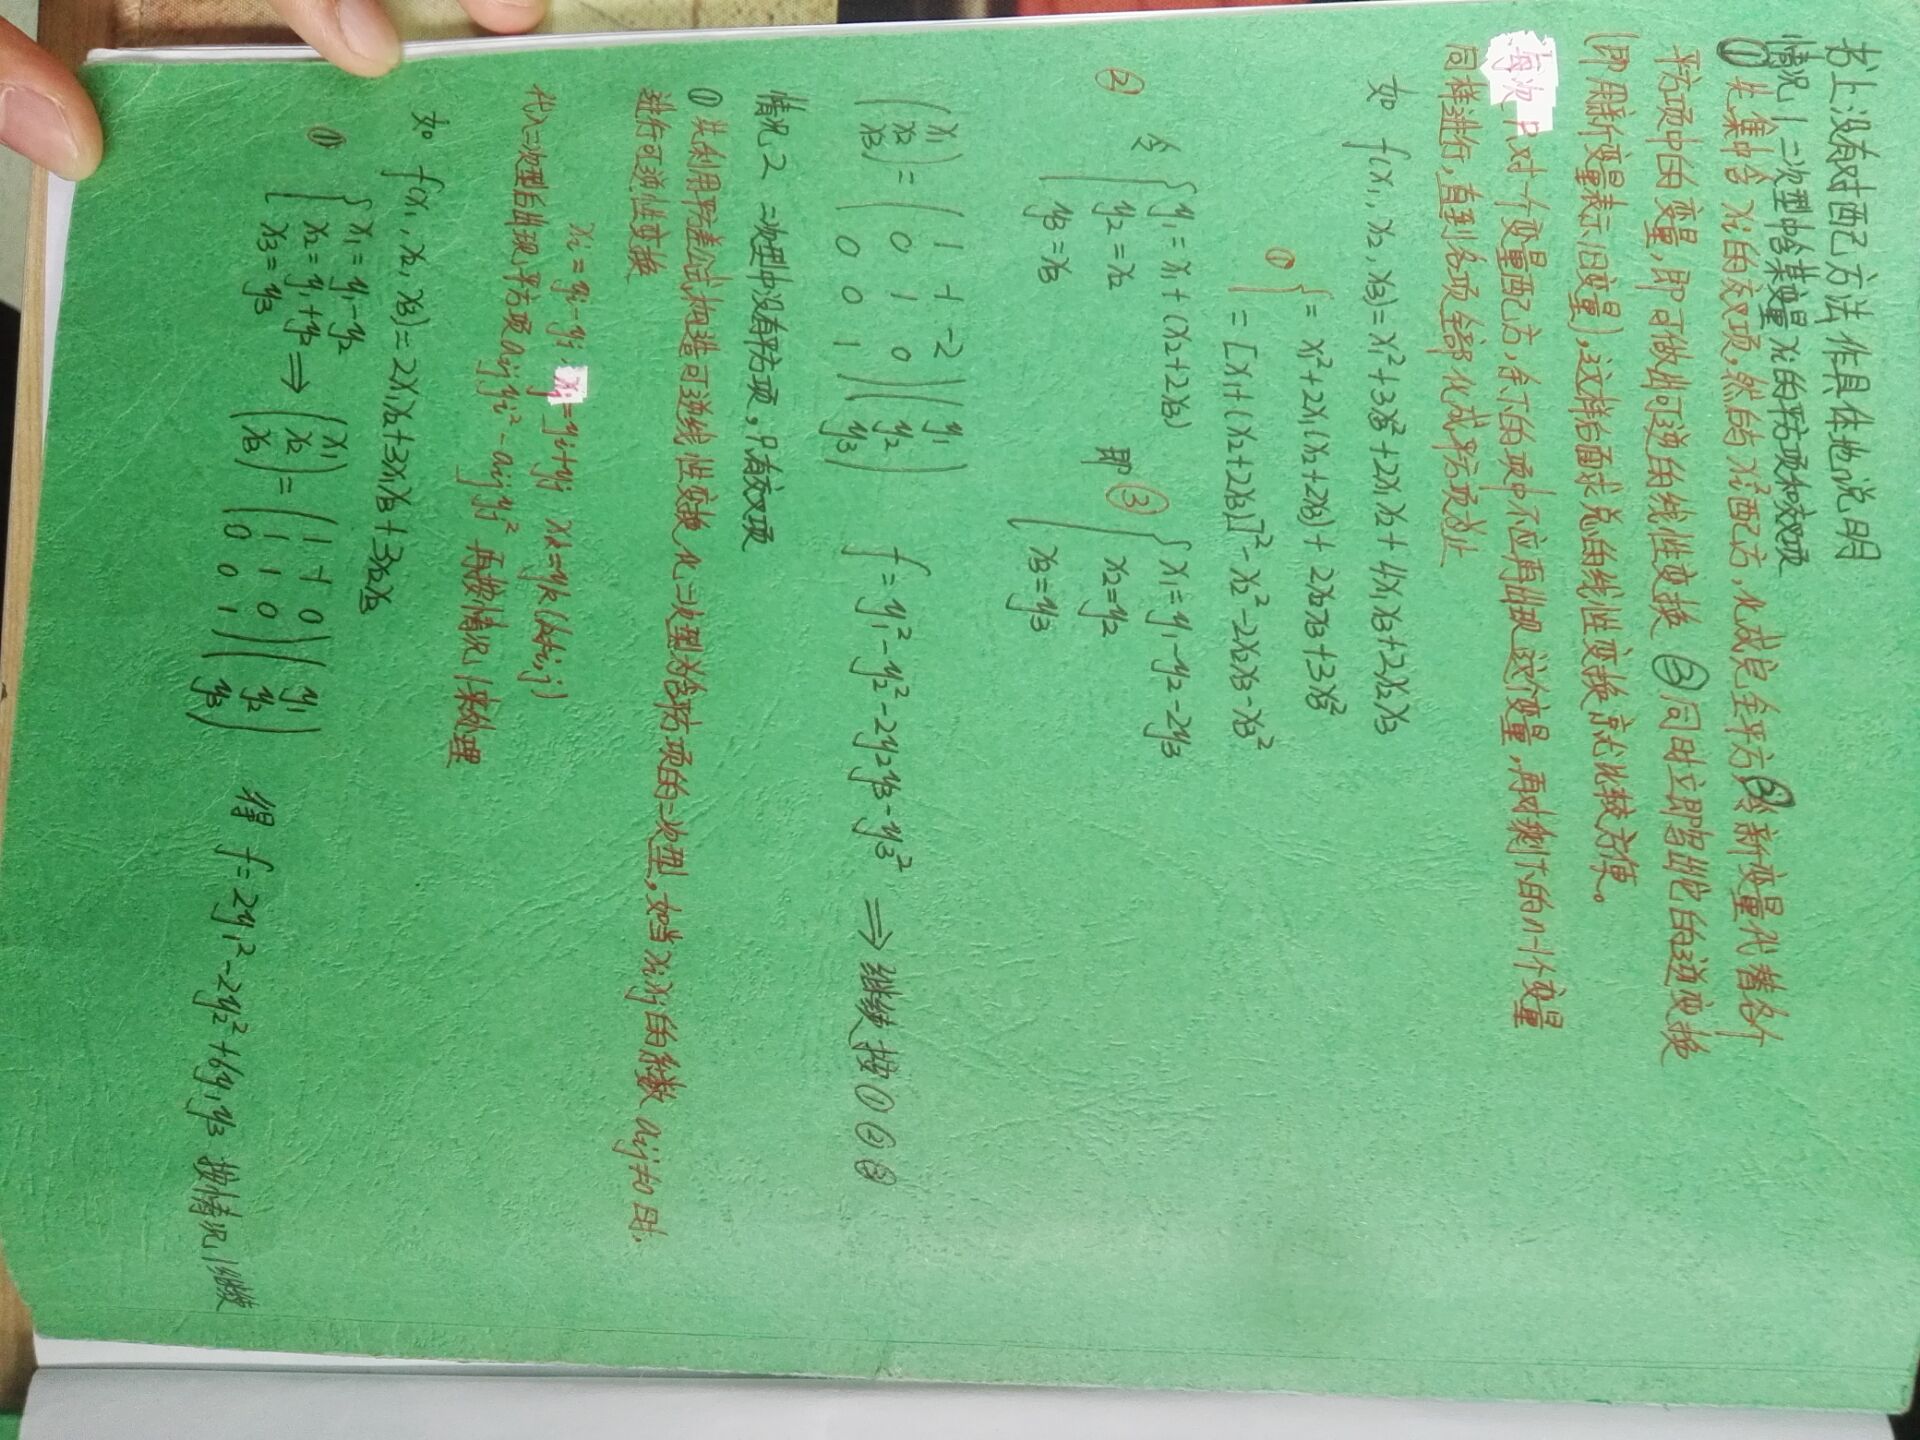 书上没有对配方法作具体地说明
情况1 二次型中含某变量xᵢ的平方项和交叉项
① 先集中含xᵢ的交叉项,然后与xᵢ²配方,化成完全平方 ② 令新变量代替各个
平方项中的变量,即可做出可逆的线性变换 ③ 同时立即写出它的逆变换
(即用新变量表示旧变量),这样后面求总的线性变换就比较方便。
每次只对一个变量配方,余下的项中不应再出现这个变量,再对剩下的n-1个变量
同样进行,直到各项全部化成平方项为止
如 f(x₁, x₂, x₃) = x₁² + 3x₃² + 2x₁x₂ + 4x₁x₃ + 2x₂x₃
① { = x₁² + 2x₁(x₂+2x₃) + 2x₂x₃ + 3x₃²
= [x₁+(x₂+2x₃)]² - x₂² - 2x₂x₃ - x₃²
② 令 { y₁ = x₁ + (x₂+2x₃)
y₂ = x₂
y₃ = x₃
即 ③ { x₁ = y₁ - y₂ - 2y₃
x₂ = y₂
x₃ = y₃
(x₁
x₂
x₃) = (1 -1 -2
0 1 0
0 0 1)(y₁
y₂
y₃) f = y₁² - y₂² - 2y₂y₃ - y₃² ⇒ 继续按①②③
情况2 二次型中没有平方项,只有交叉项
① 先利用平方差公式构造可逆线性变换,化二次型为含平方项的二次型,如当xᵢxⱼ的系数aᵢⱼ≠0时,
进行可逆线性变换
xᵢ = yᵢ - yⱼ, xⱼ = yᵢ + yⱼ xₖ = yₖ (k≠i,j)
代入二次型后出现平方项 aᵢⱼyᵢ² - aᵢⱼyⱼ² 再按情况1来处理
如 f(x₁, x₂, x₃) = 2x₁x₂ + 3x₁x₃ + 3x₂x₃
① { x₁ = y₁ - y₂
x₂ = y₁ + y₂
x₃ = y₃ ⇒ (x₁
x₂
x₃) = (1 -1 0
1 1 0
0 0 1)(y₁
y₂
y₃) 得 f = 2y₁² - 2y₂² + 6y₁y₃ 按情况1继续